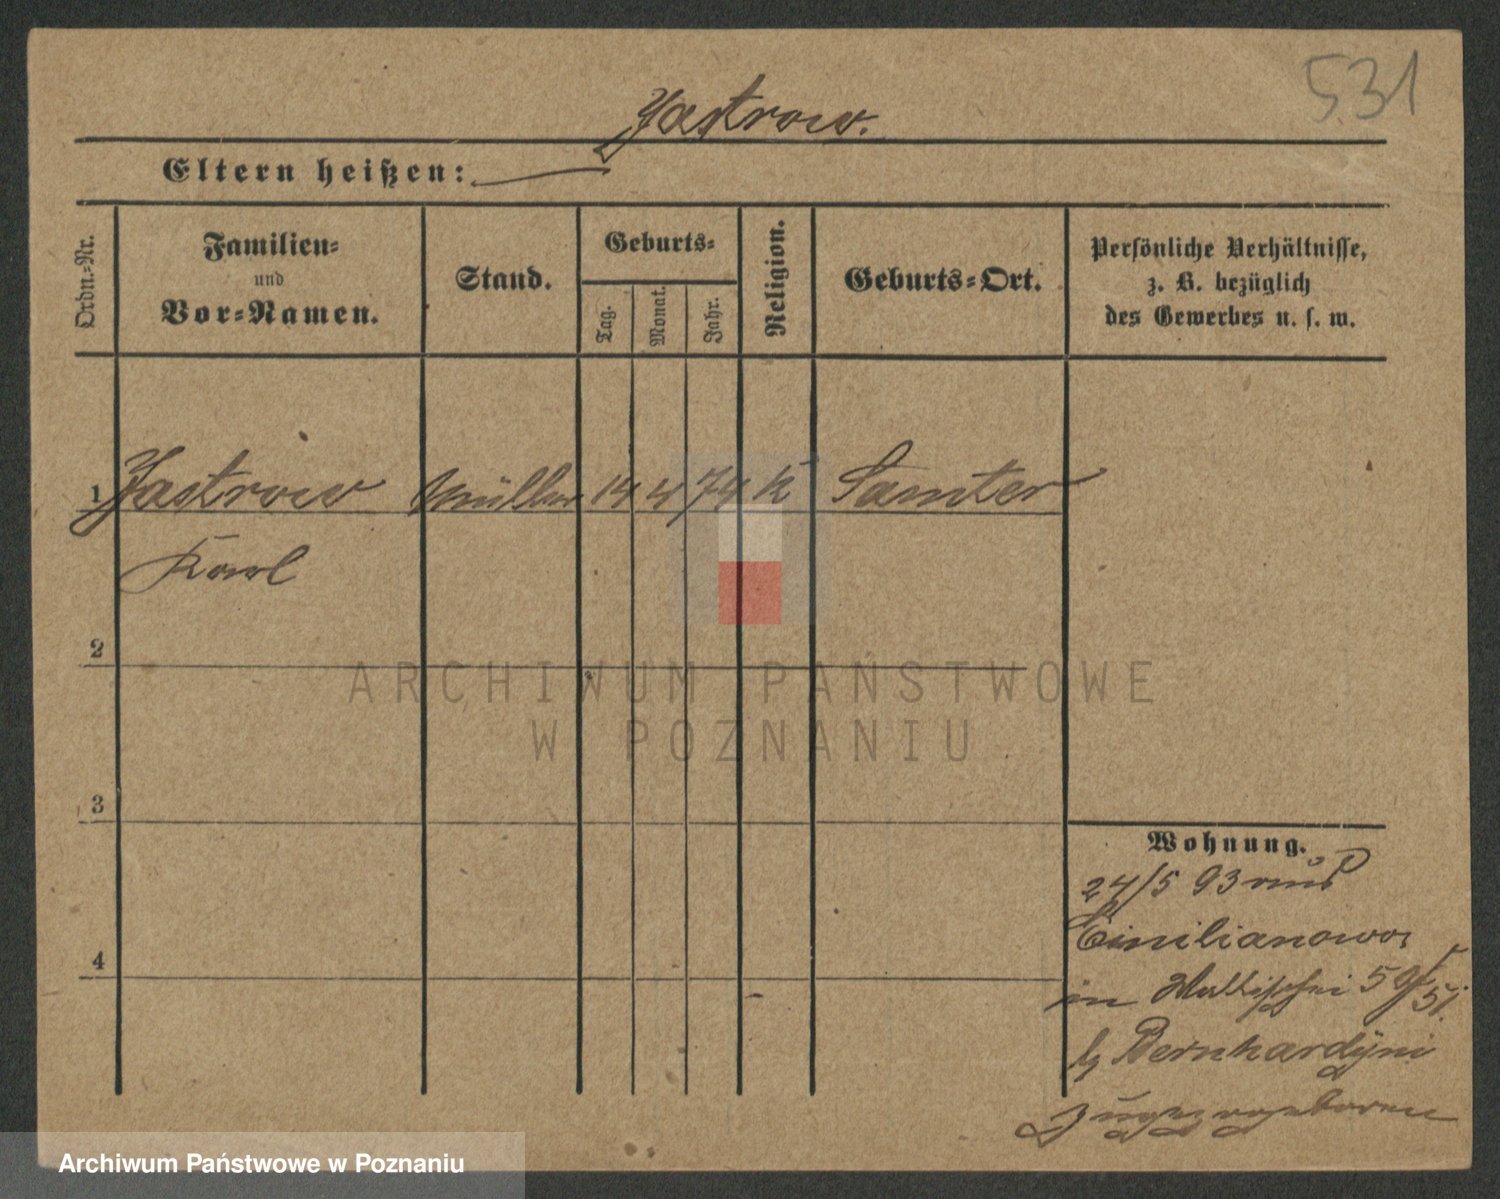 531
Jastrow.
Eltern heißen: —
Ordn.-Nr.
Familien-
und
Vor-Namen.
Stand.
Geburts-
Tag.
Monat.
Jahr.
Religion.
Geburts-Ort.
Persönliche Verhältnisse,
z. B. bezüglich
des Gewerbes u. s. w.
1 Jastrow Müller 14 4 74 K Samter
Karl
2
ARCHIWUM PAŃSTWOWE
W POZNANIU
3
4
Wohnung.
24/5 93 aus
Einilianowo
in Wallischei 59/51.
b Bernhardyni
zugezogen
Archiwum Państwowe w Poznaniu